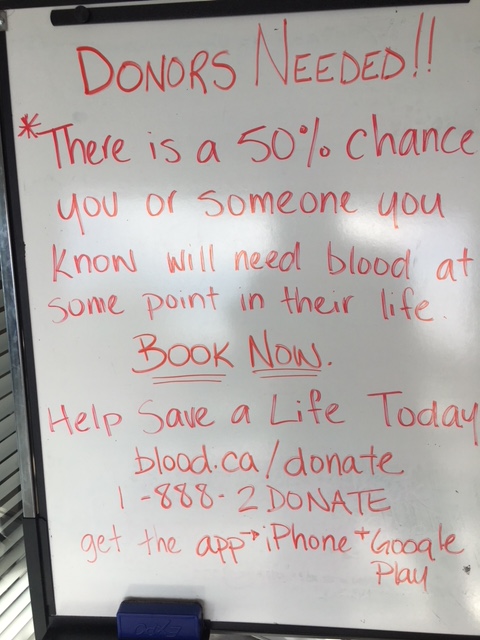 DONORS NEEDED!!
*There is a 50% chance
you or someone you
know will need blood at
some point in their life.
BOOK NOW.
Help Save a Life Today
blood.ca/donate
1-888-2DONATE
get the app→iPhone+Google
Play
Expo